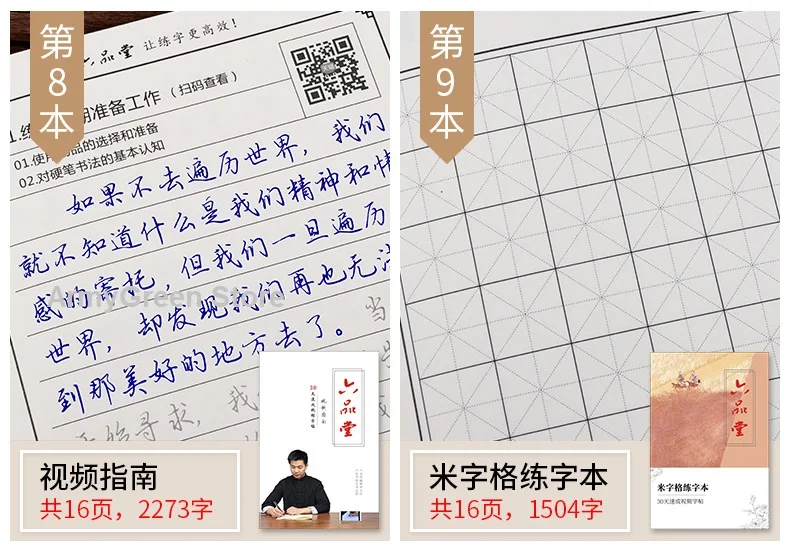 第8本
六品堂 让练字更高效!
期准备工作（扫码查看）
01.使用
品的选择和准备
02.对硬笔书法的基本认知
如果不去遍历世界，我们
就不知道什么是我们精神和情
感的寄托，但我们一旦遍历
世界，却发现我们再也无法
到那美好的地方去了。
当
寻求，我
ArmyGreen Store
六品堂
视频指南
共16页，2273字
第9本
六品堂
米字格练字本
30天速成视频字帖
米字格练字本
共16页，1504字